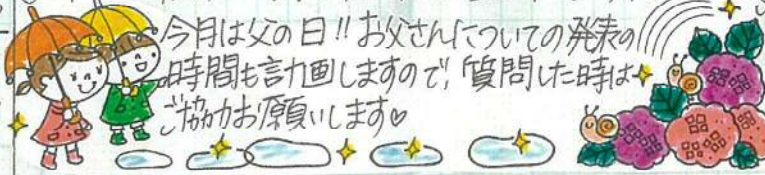 今月は父の日!!お父さんについての発表の
時間も計画しますので、質問した時は
ご協力お願いします♡